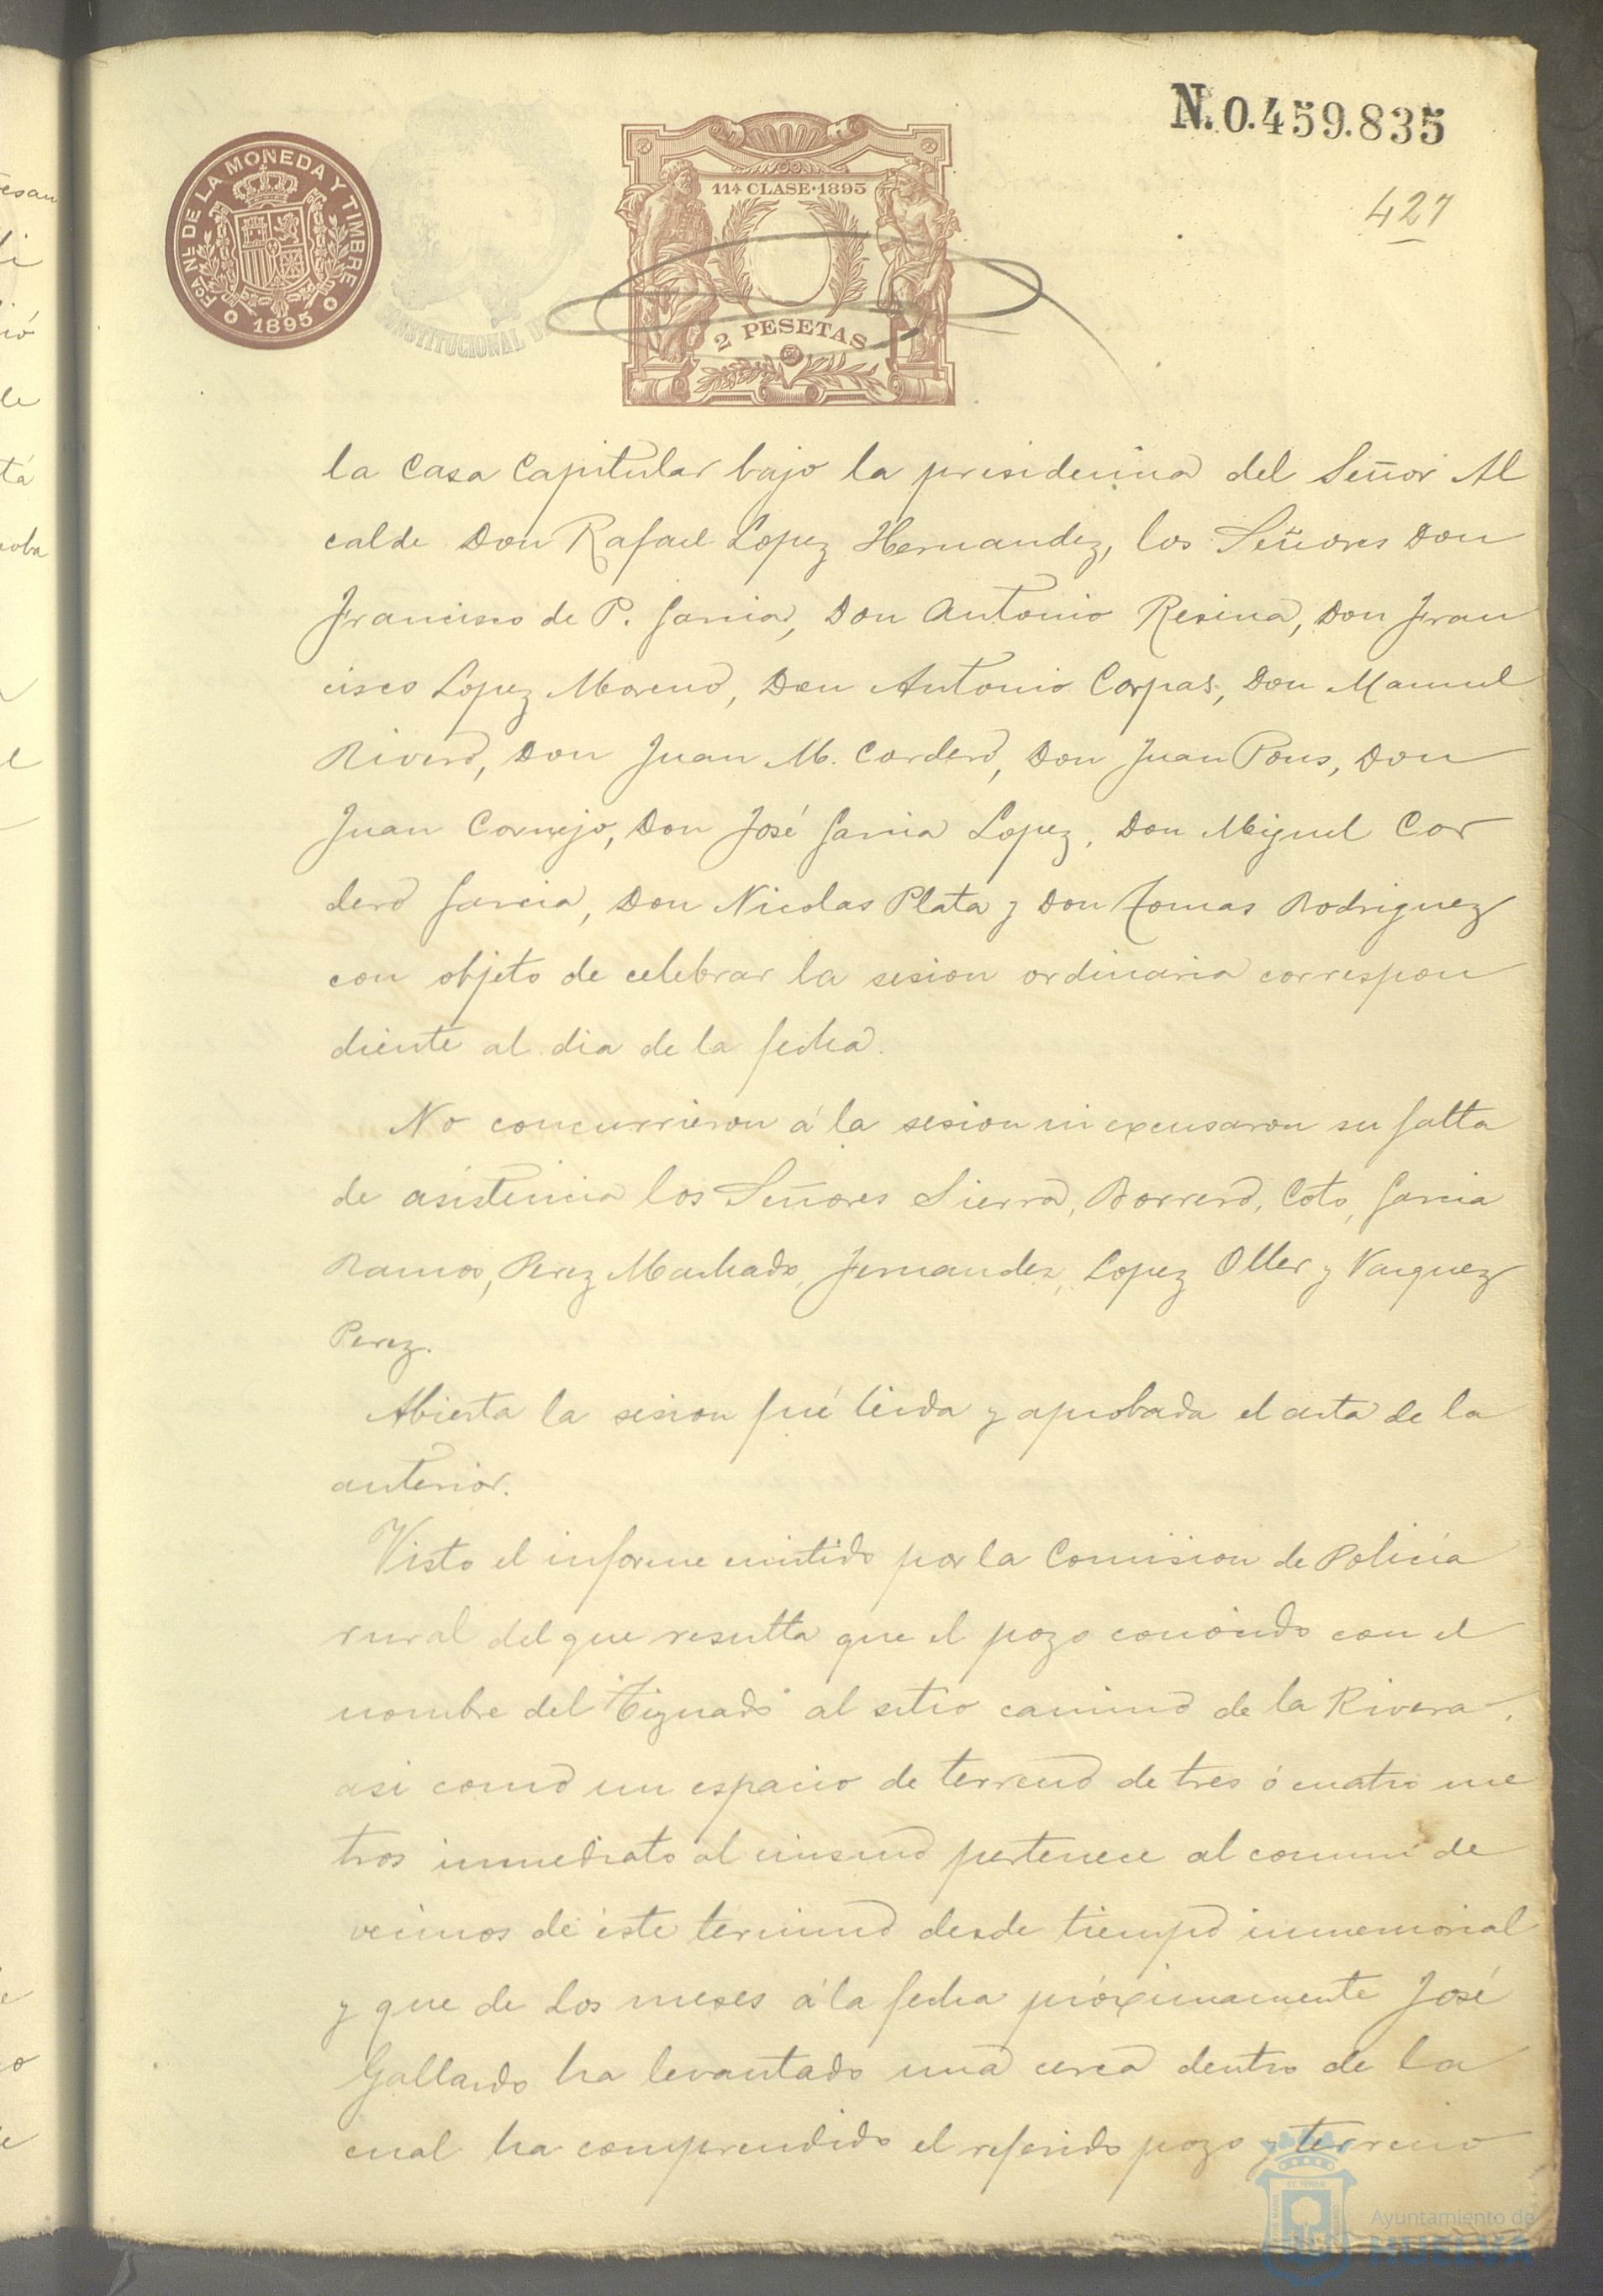 N. 0.459.835
427
FCA NL DE LA MONEDA Y TIMBRE
1895
CONSTITUCIONAL DE
11ª CLASE·1895
2 PESETAS
la Casa Capitular bajo la presidencia del Señor Al
calde Don Rafael Lopez Hernandez, los Señores Don
Francisco de P. Garcia, Don Antonio Resina, Don Fran
cisco Lopez Moreno, Don Antonio Corpas, Don Manuel
Rivero, Don Juan M. Cordero, Don Juan Pons, Don
Juan Cornejo, Don José Garcia Lopez, Don Miguel Cor
dero Garcia, Don Nicolas Plata y Don Tomas Rodriguez
con objeto de celebrar la sesion ordinaria correspon
diente al dia de la fecha.
No concurrieron á la sesion ni excusaron su falta
de asistencia los Señores Sierra, Borrero, Coto, Garcia
Ramos, Perez Machado, Fernandez, Lopez Oller y Vazquez
Perez.
Abierta la sesion fué leida y aprobada el acta de la
anterior.
Visto el informe emitido por la Comision de Policia
rural del que resulta que el pozo conocido con el
nombre del "Tignado" al sitio camino de la Rivera,
asi como un espacio de terreno de tres ó cuatro me
tros inmediato al mismo pertenece al comun de
vecinos de éste término desde tiempo inmemorial
y que de dos meses á la fecha próximamente José
Gallardo ha levantado una cerca dentro de la
cual ha comprendido el referido pozo y terreno
Ayuntamiento de
HUELVA